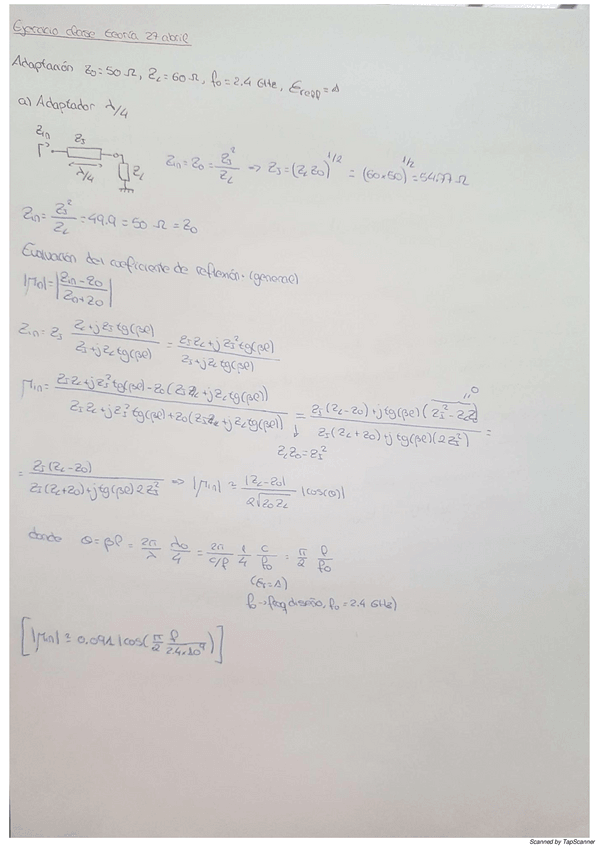 Ejercicio clase teoría 27 abril
Adaptación Z0=50 Ω, ZL=60 Ω, f0=2.4 GHz, Ereff=1
a) Adaptador λ/4
Zin Zs
Γ λ/4 ZL
Zin=Z0=Zs²/ZL ⇒ Zs=(ZL Z0)^1/2=(60×50)^1/2=54.77 Ω
Zin=Zs²/ZL=49.9=50 Ω=Z0
Evaluación del coeficiente de reflexión: (general)
|Γin|=|(Zin-Z0)/(Zin+Z0)|
Zin=Zs (ZL+jZs tg(βl))/(Zs+jZL tg(βl))=(ZsZL+jZs² tg(βl))/(Zs+jZL tg(βl))
=(Zs(ZL-Z0)+j tg(βl)(Zs²-Z0ZL))/(Zs(ZL+Z0)+j tg(βl)(2Zs²))=
"0
ZLZ0=Zs²
=Zs(ZL-Z0)/(Zs(ZL+Z0)+j tg(βl)2Zs²) ⇒ |Γin|≅|ZL-Z0|/(2√(Z0ZL)) |cos(θ)|
donde θ=βl=2π/λ λ0/4=2π/(c/f) 1/4 c/f0=π/2 f/f0
(Er=1)
f0→freq diseño, f0=2.4 GHz)
[|Γin|≅0.091|cos(π/2 f/2.4×10⁹)]
Scanned by TapScanner